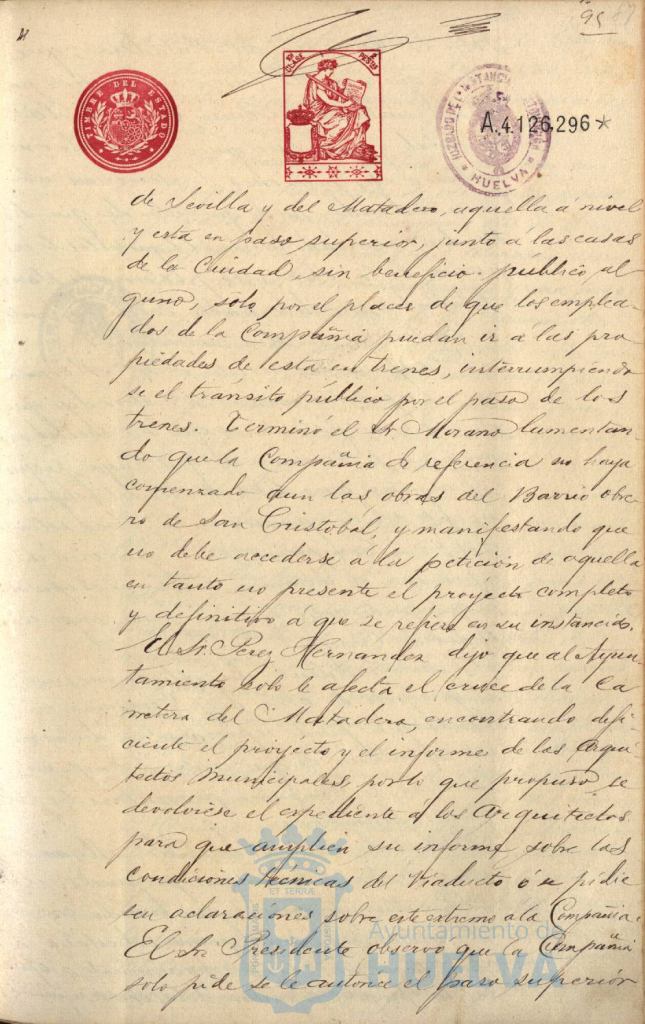 95
TIMBRE DEL ESTADO
CLASE
A.4.126.296*
HUELVA
de Sevilla y del Matadero, aquella á nivel
y esta en paso superior, junto á las casas
de la Ciudad, sin beneficio público al
guno, solo por el placer de que los emplea
dos de la Compañia puedan ir á las pro
piedades de esta en trenes, interrumpiendo
se el tránsito público por el paso de los
trenes. Terminó el Sr Morano lamentan
do que la Compañia de referencia no haya
comenzado aun las obras del Barrio obre
ro de San Cristobal, y manifestando que
no debe accederse á la petición de aquella
en tanto no presente el proyecto completo
y definitivo á que se refiere en su instancia.
El Sr. Perez Hernandez dijo que al Ayun-
tamiento solo le afecta el cruce de la Ca
rretera del Matadero, encontrando defi
ciente el proyecto y el informe de los Arqui
tectos Municipales, por lo que propuso se
devolviese el expediente a los Arquitectos
para que amplien su informe sobre las
condiciones técnicas del Viaducto ó se pidie
sen aclaraciones sobre este extremo á la Compañia.
El Sr. Presidente observó que la Compañia
solo pide se le autorice el paso superior
Ayuntamiento de
HUELVA